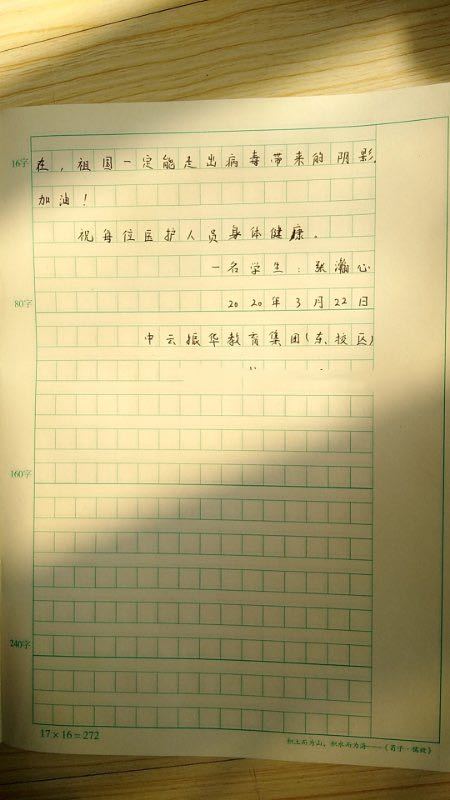 16字
在，祖国一定能走出病毒带来的阴影，
加油！
祝每位医护人员身体健康。
一名学生：张瀚心
80字
2020年3月22日
中云振华教育集团(东校区)
160字
240字
17×16=272
积土而为山，积水而为海——《荀子·儒效》